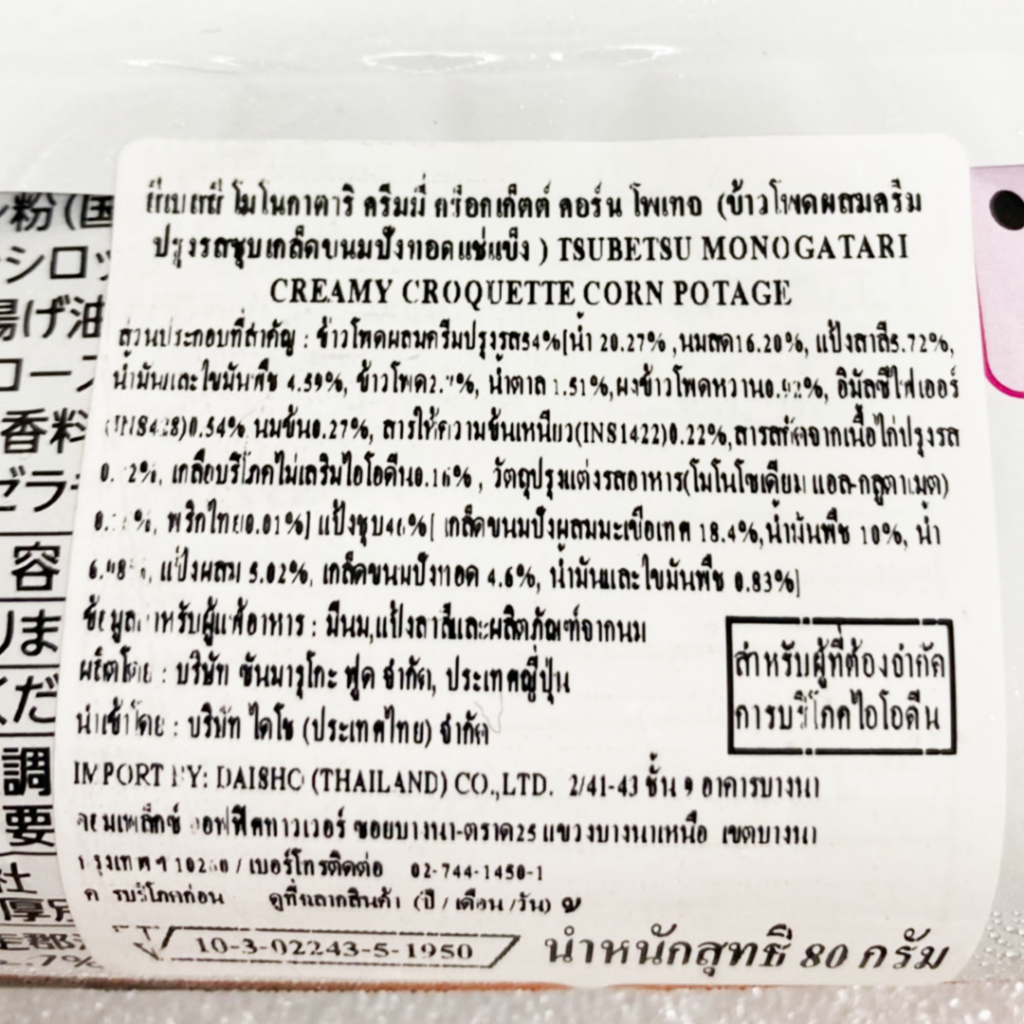 โมโนกาตาริ ครีมมี่ คร็อกเก็ตต์ คอร์น โพเทจ (ข้าวโพดผสมครีม
ปรุงรสชุบเกล็ดขนมปังทอดแช่แข็ง ) TSUBETSU MONOGATARI
CREAMY CROQUETTE CORN POTAGE
ส่วนประกอบที่สำคัญ : ข้าวโพดผสมครีมปรุงรส54%[น้ำ 20.27% ,นมสด16.20%, แป้งสาลี5.72%,
น้ำมันและไขมันพืช 4.59%, ข้าวโพด น้ำตาล 1.51%,ผงข้าวโพดหวาน อิมัลซิไฟเออร์
0.54% นมข้น0.27%, สารให้ความข้นเหนียว(INS1422)0.22%,สารสกัดจากเนื้อไก่ปรุงรส
เกลือบริโภคไม่เสริมไอโอดีน0.16% , วัตถุปรุงแต่งรสอาหาร(โมโนโซเดียม แอล-กลูตาเมต)
พริกไทย0.01%] แป้งชุบ46%[ เกล็ดขนมปังผสมมะเขือเทศ 18.4%,น้ำมันพืช 10%, น้ำ
แป้งผสม 5.02%, เกล็ดขนมปังทอด 4.6%, น้ำมันและไขมันพืช 0.83%]
ข้อมูลสำหรับผู้แพ้อาหาร : มีนม,แป้งสาลีและผลิตภัณฑ์จากนม
ผลิตโดย : บริษัท ซันมารุโกะ ฟูด จำกัด, ประเทศญี่ปุ่น
นำเข้าโดย : บริษัท ไดโช (ประเทศไทย) จำกัด
สำหรับผู้ที่ต้องจำกัด
การบริโภคไอโอดีน
IMPORT BY: DAISHO (THAILAND) CO.,LTD. 2/41-43 ชั้น 9 อาคารบางนา
คอมเพล็กซ์ ออฟฟิศทาวเวอร์ ซอยบางนา-ตราด25 แขวงบางนาเหนือ เขตบางนา
กรุงเทพฯ / เบอร์โทรติดต่อ 02-744-1450-1
ควรบริโภคก่อน ดูที่ฉลากสินค้า (ปี / เดือน /วัน)
10-3-02243-5-1950
น้ำหนักสุทธิ 80 กรัม
粉(国
シロッ
揚げ油
ロース
香料
ゼラチ
容
りま
くだ
調
要
社
厚別